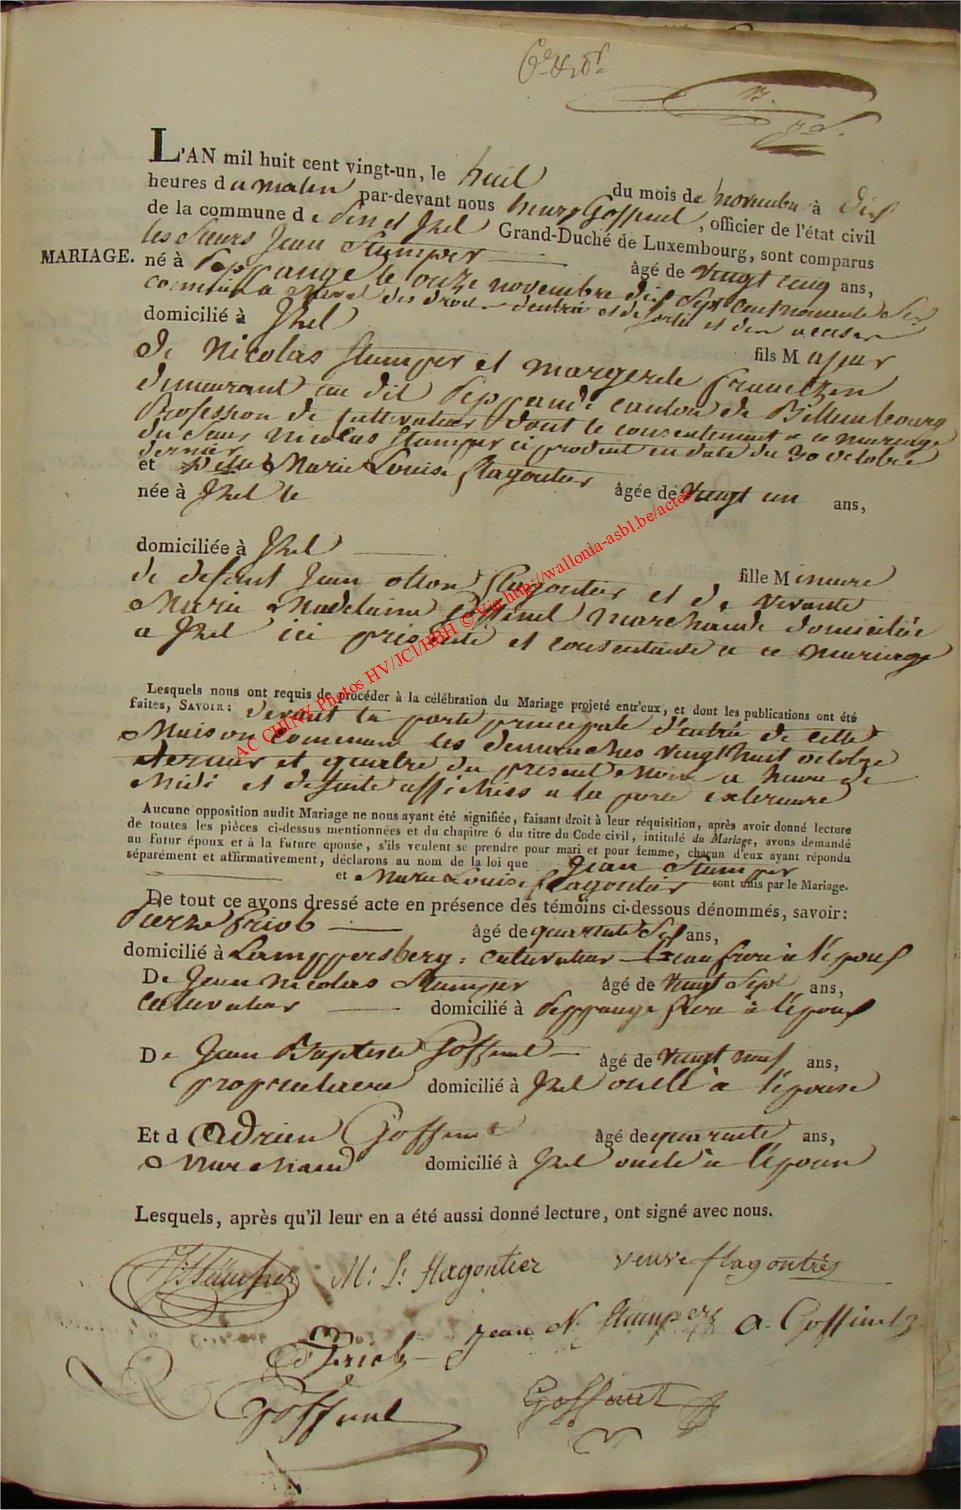 L'AN mil huit cent vingt-un, le huit du mois de novembre à dix
heures du matin par-devant nous henry Goffinet, officier de l'état civil
de la commune de Pin et Izel Grand-Duché de Luxembourg, sont comparus
les Sieurs Jean Stumper âgé de vingt cinq ans,
MARIAGE.
né à Peppange le onze novembre dix Sept cent nonante Six
domicilié à Izel fils Majeur
de Nicolas Stumper et Margerite
demeurant au dit Peppange canton de Bettembourg
Profession de Cultivateur dont le consentement a ce mariage
du Sieur Nicolas Stumper ci produit en date du 30 octobre
dernier
et Delle Marie Louise flagontier âgée de vingt un ans,
née à Izel le
domiciliée à Izel fille Mineure
de defunt Jean otton flagontier et de vivante
Marie Madelaine Goffinet Marchande domiciliée
a Izel ici présente et consentante a ce mariage
Lesquels nous ont requis de procéder à la célébration du Mariage projeté entr'eux, et dont les publications ont été
faites, SAVOIR: devant la porte principale d'entrée de cette
Maison Commune les dimanches vingt huit octobre
dernier et quatre du present Mois a heure de
Midi et desuite affichées a la porte exterieure
Aucune opposition audit Mariage ne nous ayant été signifiée, faisant droit à leur réquisition, après avoir donné lecture
de toutes les pièces ci-dessus mentionnées et du chapitre 6 du titre du Code civil, intitulé du Mariage, avons demandé
au futur époux et à la future épouse, s'ils veulent se prendre pour mari et pour femme, chacun d'eux ayant répondu
séparément et affirmativement, déclarons au nom de la loi que Jean Stumper
et Marie Louise flagontier sont unis par le Mariage.
De tout ce avons dressé acte en présence des témoins ci-dessous dénommés, savoir:
Pierre Friob âgé de quarante Six ans,
domicilié à Lamppersberg, cultivateur beaufrere à l'époux
De Jean Nicolas Stumper âgé de vingt Sept ans,
cultivateur domicilié à Peppange frere à l'époux
De Jean Baptiste Goffinet âgé de vingt neuf ans,
proprietaire domicilié à Izel oncle à l'épouse
Et d Adrien Goffinet âgé de quarante ans,
Marchand domicilié à Izel oncle à l'épouse
Lesquels, après qu'il leur en a été aussi donné lecture, ont signé avec nous.
J. Stümper M: L: flagontier veuve flagontier
P Friob Jean N. Stumper a. Goffinet
Goffinet Goffinet
AC CHINY Photos HV/JCl/HBH © Via http://wallonia-asbl.be/actes